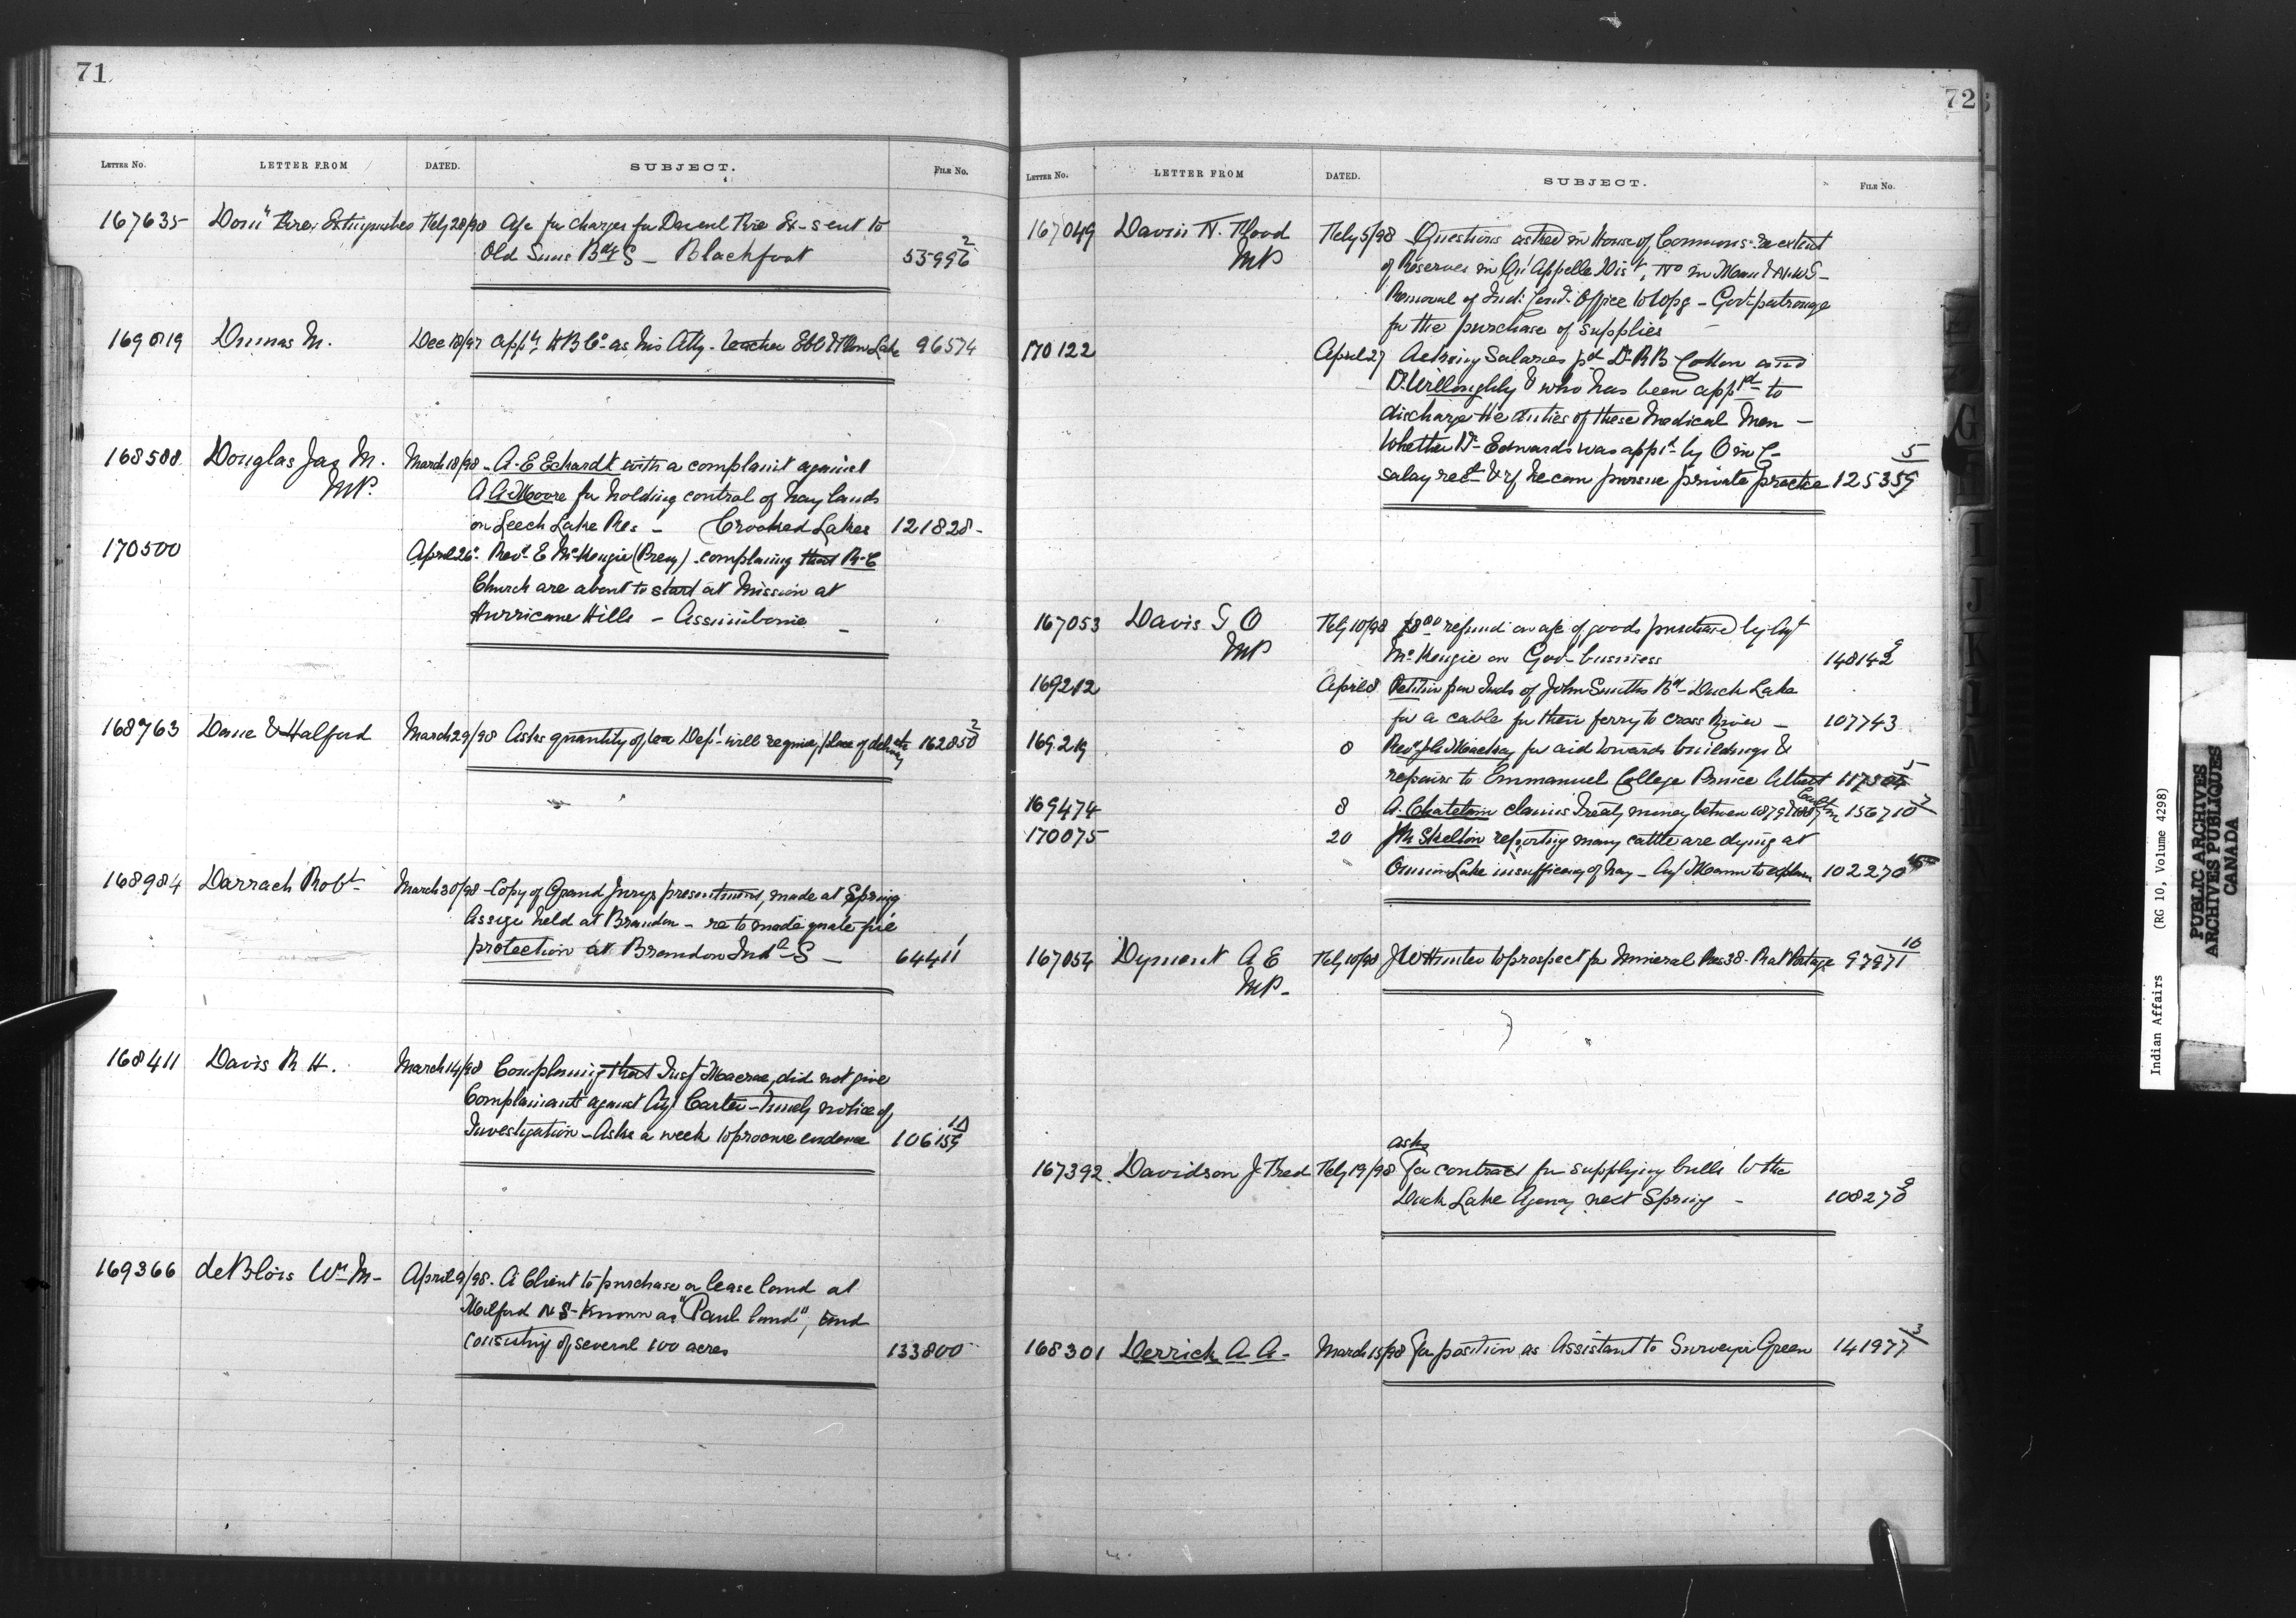 71
LETTER NO. LETTER FROM DATED. SUBJECT. FILE No.
167635 Domn Fire Extinguisher Feby 28/98 a/c for charges for Fire Ex- sent to
Old Suns Bdg S - Blackfoot 53996 2
169019 Dumas M. Dec 18/97 appts HB Co as his Atty - teacher Lake 96574
168588 Douglas Jas M. March 18/98 - A.E Eckardt with a complaint against
MP. A A Moore for holding control of hay lands
on Leech Lake Res - Crooked Lakes 121828 -
170500 April 26 Revd E McKenzie (Presy) complaining that R.C
Church are about to start at Mission at
Hurricane Hills - Assiniboine -
168763 Dane & Halford March 29/98 Asks quantity of tea Dept will require, place of delivery etc 162850 2
168984 Darrach Robt March 30/98 - Copy of Grand Jurys presentment, made at Spring
Assize held at Brandon - re fire
protection at Brandon Indl S - 64411 1
168411 Davis R H. March 14/98 Complaining that Insp Macrae, did not give
Complainants against Agt Carter - timely notice of
Investigation - Asks a week to procure evidence 106159 10
169366 deBlois Wm M - April 9/98. A Client to purchase or lease land at
Milford N S - Known as "Paul land", and
consisting of several 100 acres 133800
72
LETTER NO. LETTER FROM DATED. SUBJECT. FILE NO.
167049 Davin N. Flood Feby 5/98 Questions asked in House of Commons re extent
MP of Reserves in Qu'Appelle Dist, No in Man & N.W.T -
Removal of Ind: Comr Office to Wpg - Govt patronage
for the purchase of supplies -
170122 April 27 Asking Salaries pd Dr R B Cotton and
Dr Willoughby & who has been appd to
discharge the duties of these Medical Men -
Whether Dr Edwards was appd by O in C -
salary recd & if he can pursue private practice 125359 5
167053 Davis T O Feby 10/98 $8.00 refund on a/c of goods purchased by Agt
MP McKenzie on Govt business 148142 9
169212 April 8 Petition from Inds of John Smiths Bd - Duck Lake
for a cable for their ferry to cross River - 107743
169219 8 Revd Mackay for aid towards buildings &
repairs to Emmanuel College Prince Albert 5
169474 8 A. Chatelain claims Treaty money between 156710 7
170075 20 Skelton reporting many cattle are dying at
Onion Lake insufficiency of hay - Agt Mann to explain 102270
167054 Dyment A E Feby 10/98 J W Hunter to prospect for Mineral Res 38 - Rat Portage 97971 10
MP -
asks
167392 Davidson J Fred Feby 19/98 for contract for supplying bulls to the
Duck Lake Agency next Spring - 108270 9
168301 Derrick A A - March 15/98 for position as Assistant to Surveyor Green 141977 3
Indian Affairs (RG 10, Volume 4298)
PUBLIC ARCHIVES
ARCHIVES PUBLIQUES
CANADA
G
I
J
K